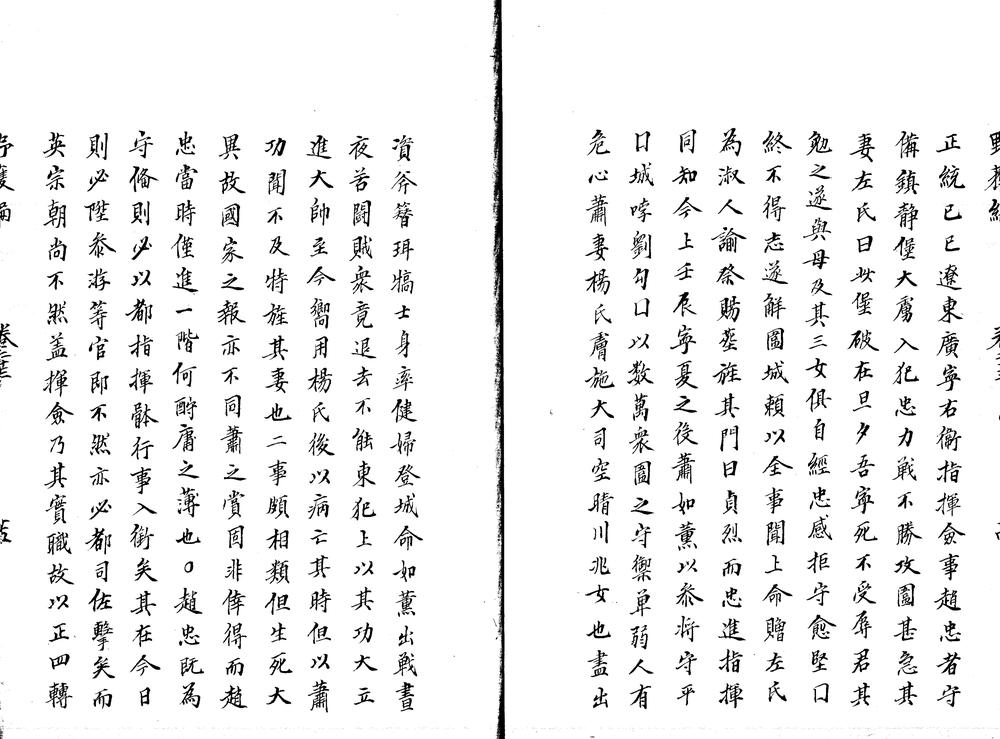 正統己巳遼東廣寧右衛指揮僉事趙忠者守
備鎮靜堡大虜入犯忠力戰不勝攻圍甚急其
妻左氏曰此堡破在旦夕吾寧死不受辱君其
勉之遂與母及其三女俱自經忠感拒守愈堅囗
終不得志遂解圍城賴以全事聞上命贈左氏
為淑人諭祭賜塟旌其門曰貞烈而忠進指揮
同知今上壬辰寧夏之役蕭如薰以叅將守平
口城哱劉勾口以数萬衆圍之守禦单弱人有
危心蕭妻楊氏膚施大司空晴川兆女也盡出
資斧簪珥犒士身率健婦登城命如薰出戰晝
夜苦鬪賊衆竟退去不能東犯上以其功大立
進大帥至今嚮用楊氏後以病亡其時但以蕭
功聞不及特旌其妻也二事頗相類但生死大
異故國家之報亦不同蕭之賞固非倖得而趙
忠當時僅進一階何酧庸之薄也○趙忠既為
守俻則必以都指揮體行事入銜矣其在今日
則必陞叅游等官即不然亦必都司佐擊矣而
英宗朝尚不然盖揮僉乃其實職故以正四轉